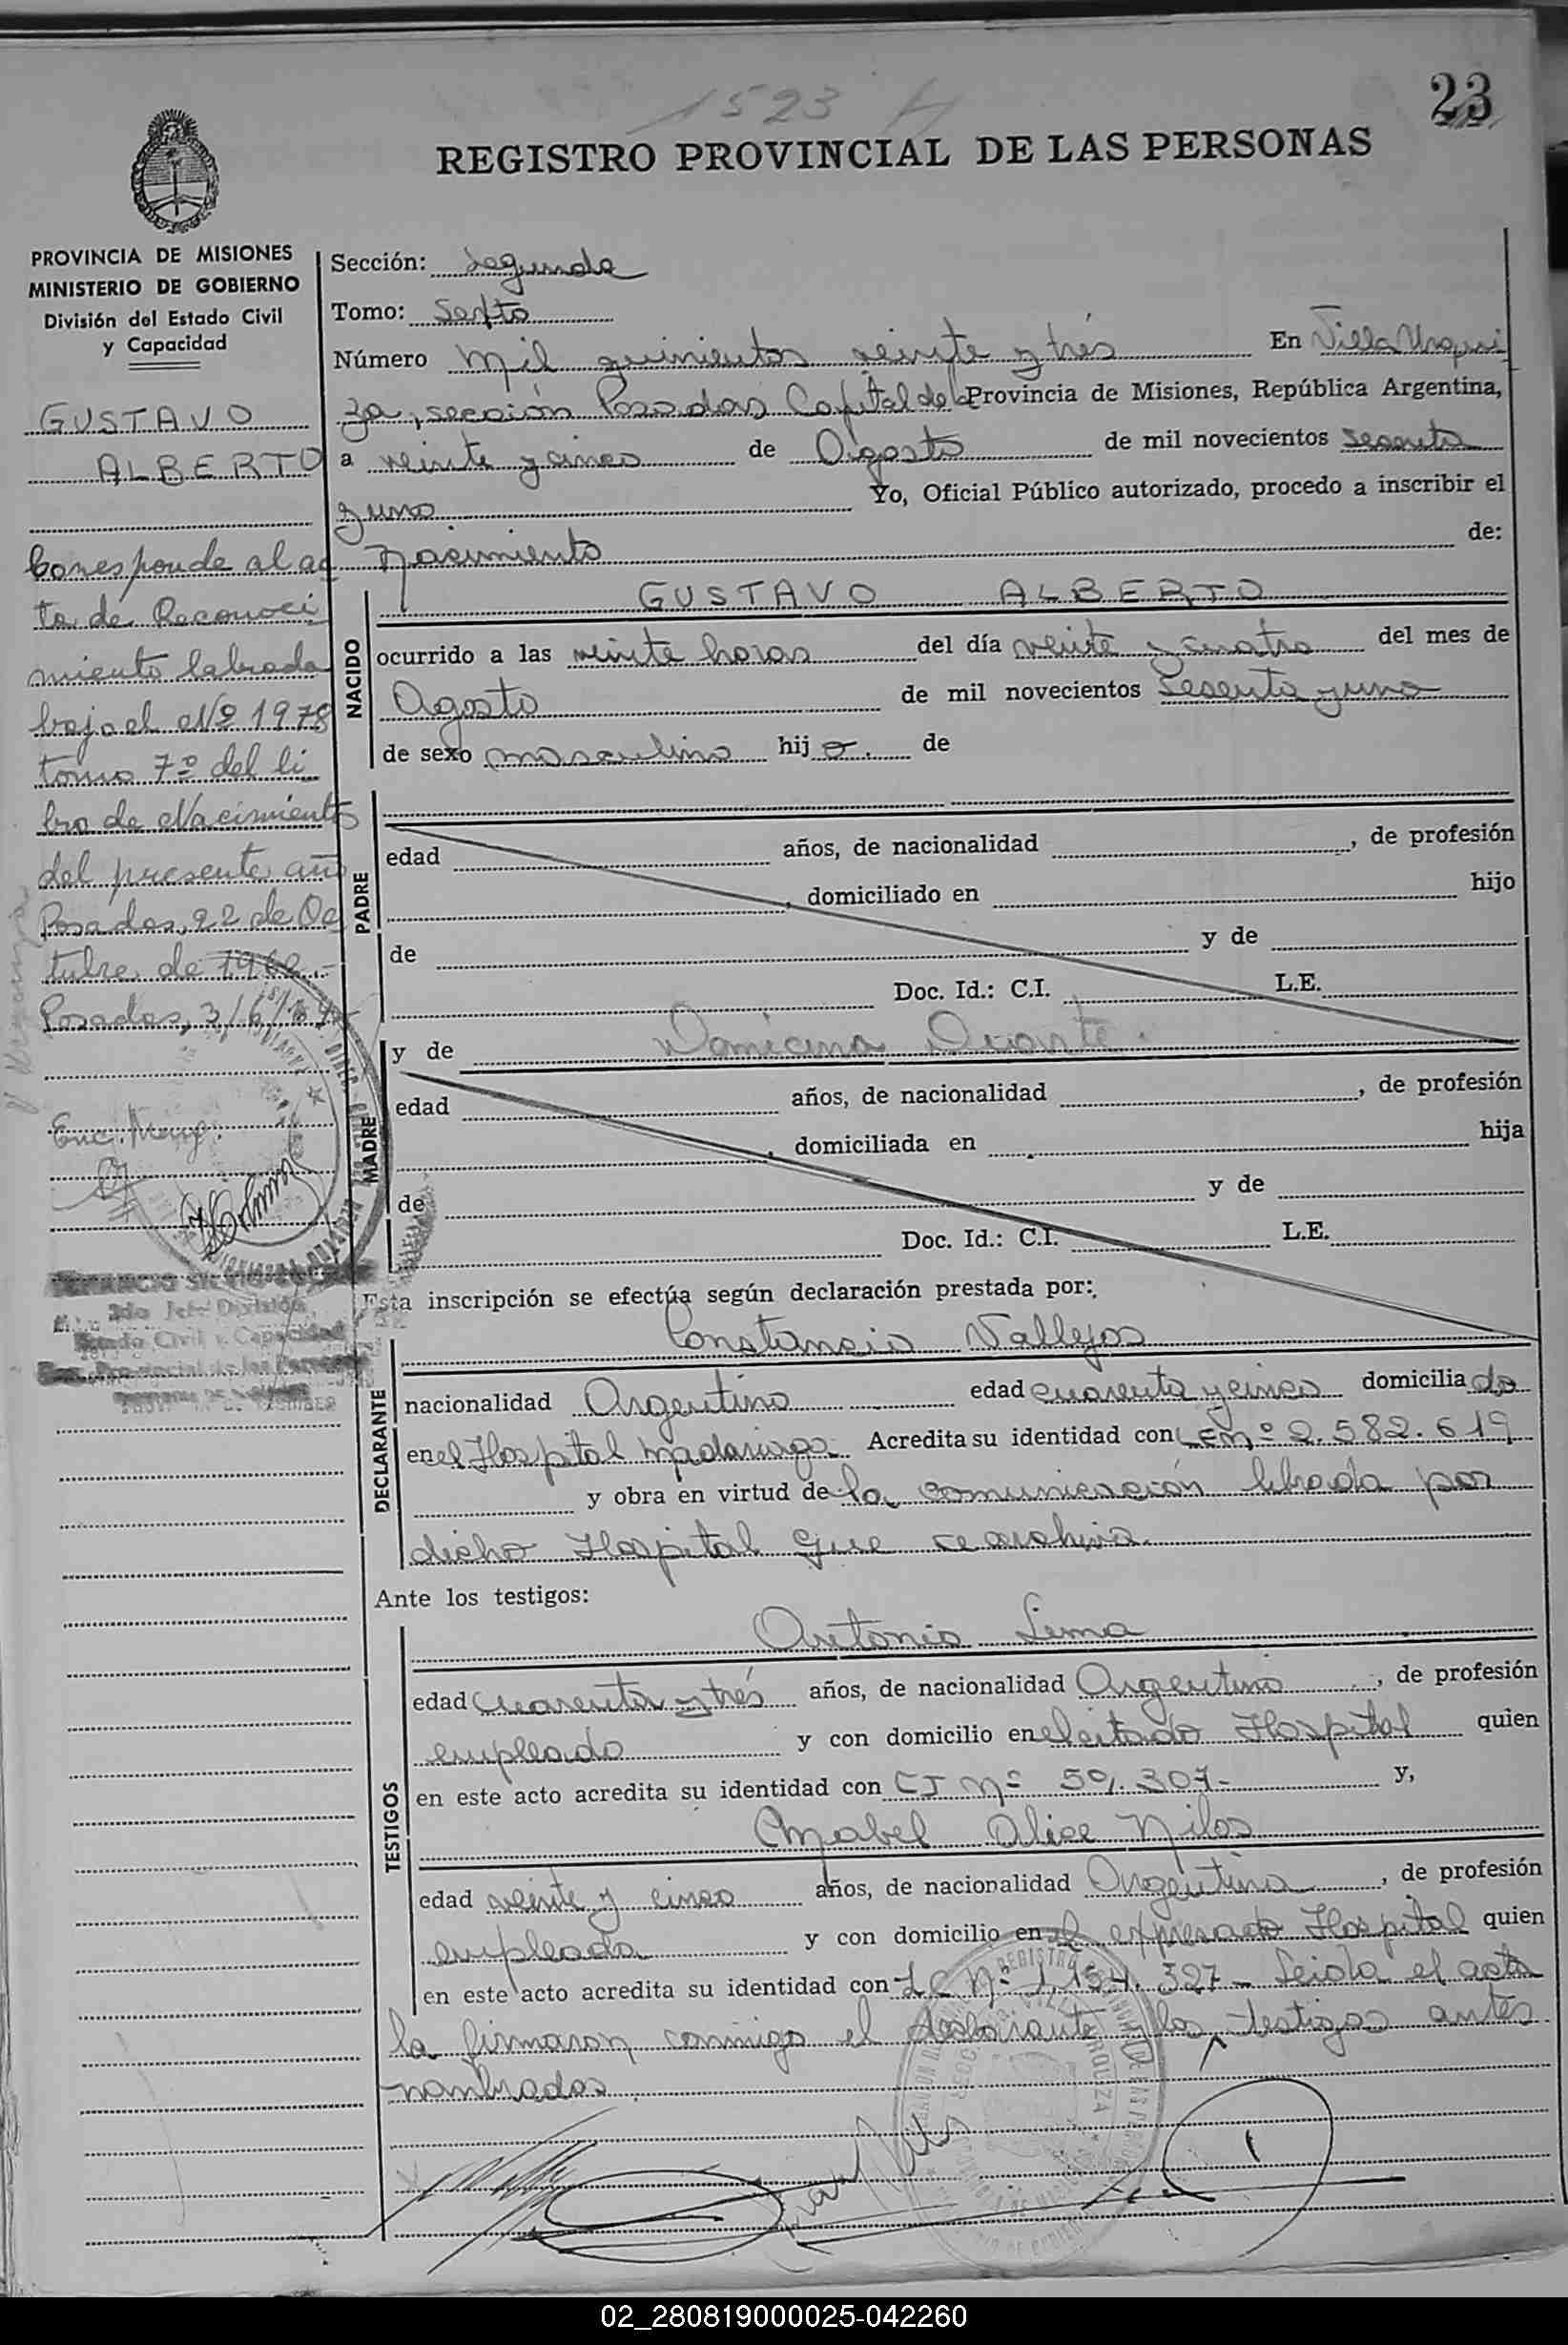 1523
23
REGISTRO PROVINCIAL DE LAS PERSONAS
PROVINCIA DE MISIONES
MINISTERIO DE GOBIERNO
División del Estado Civil
y Capacidad
GUSTAVO
ALBERTO
Corresponde al ac
ta de Reconoci
miento labrada
bajo el Nº 1978
tomo 7º del li
bro de Nacimiento
del presente año
Posadas, 22 de Oc
tubre de 1962.-
Posadas, 3/6/
2do Jefe División
Estado Civil y Capacidad
Reg. Provincial de las Personas
Sección: Segunda
Tomo: Sexto
Número Mil quinientos veinte y trés En Villa Urqui
za, sección Posadas Capital de la Provincia de Misiones, República Argentina,
a veinte y cinco de Agosto de mil novecientos sesenta
y uno Yo, Oficial Público autorizado, procedo a inscribir el
Nacimiento de:
NACIDO
GUSTAVO ALBERTO
ocurrido a las veinte horas del día veinte y cuatro del mes de
Agosto de mil novecientos Sesenta y uno
de sexo masculino hijo. de
PADRE
edad años, de nacionalidad , de profesión
, domiciliado en hijo
de y de
Doc. Id.: C.I. L.E.
MADRE
y de Domiciana Duarte.
edad años, de nacionalidad , de profesión
, domiciliada en hija
de y de
Doc. Id.: C.I. L.E.
Esta inscripción se efectúa según declaración prestada por:
DECLARANTE
Constancio Vallejos
nacionalidad Argentino edad cuarenta y cinco domiciliado
en el Hospital Madariaga. Acredita su identidad con LE Nº 2.582.619
y obra en virtud de la comunicación librada por
dicho Hospital que se archiva.
Ante los testigos:
TESTIGOS
Antonio Lima
edad cuarenta y trés años, de nacionalidad Argentino , de profesión
empleado y con domicilio en el citado Hospital quien
en este acto acredita su identidad con CI Nº 59.307- y,
Mabel Alice Nilos
edad veinte y cinco años, de nacionalidad Argentina , de profesión
empleada y con domicilio en el expresado Hospital quien
en este acto acredita su identidad con LC Nº 1.154.327- Leida el acta
la firmaron conmigo el declarante y los testigos antes
nombrados.
02_280819000025-042260